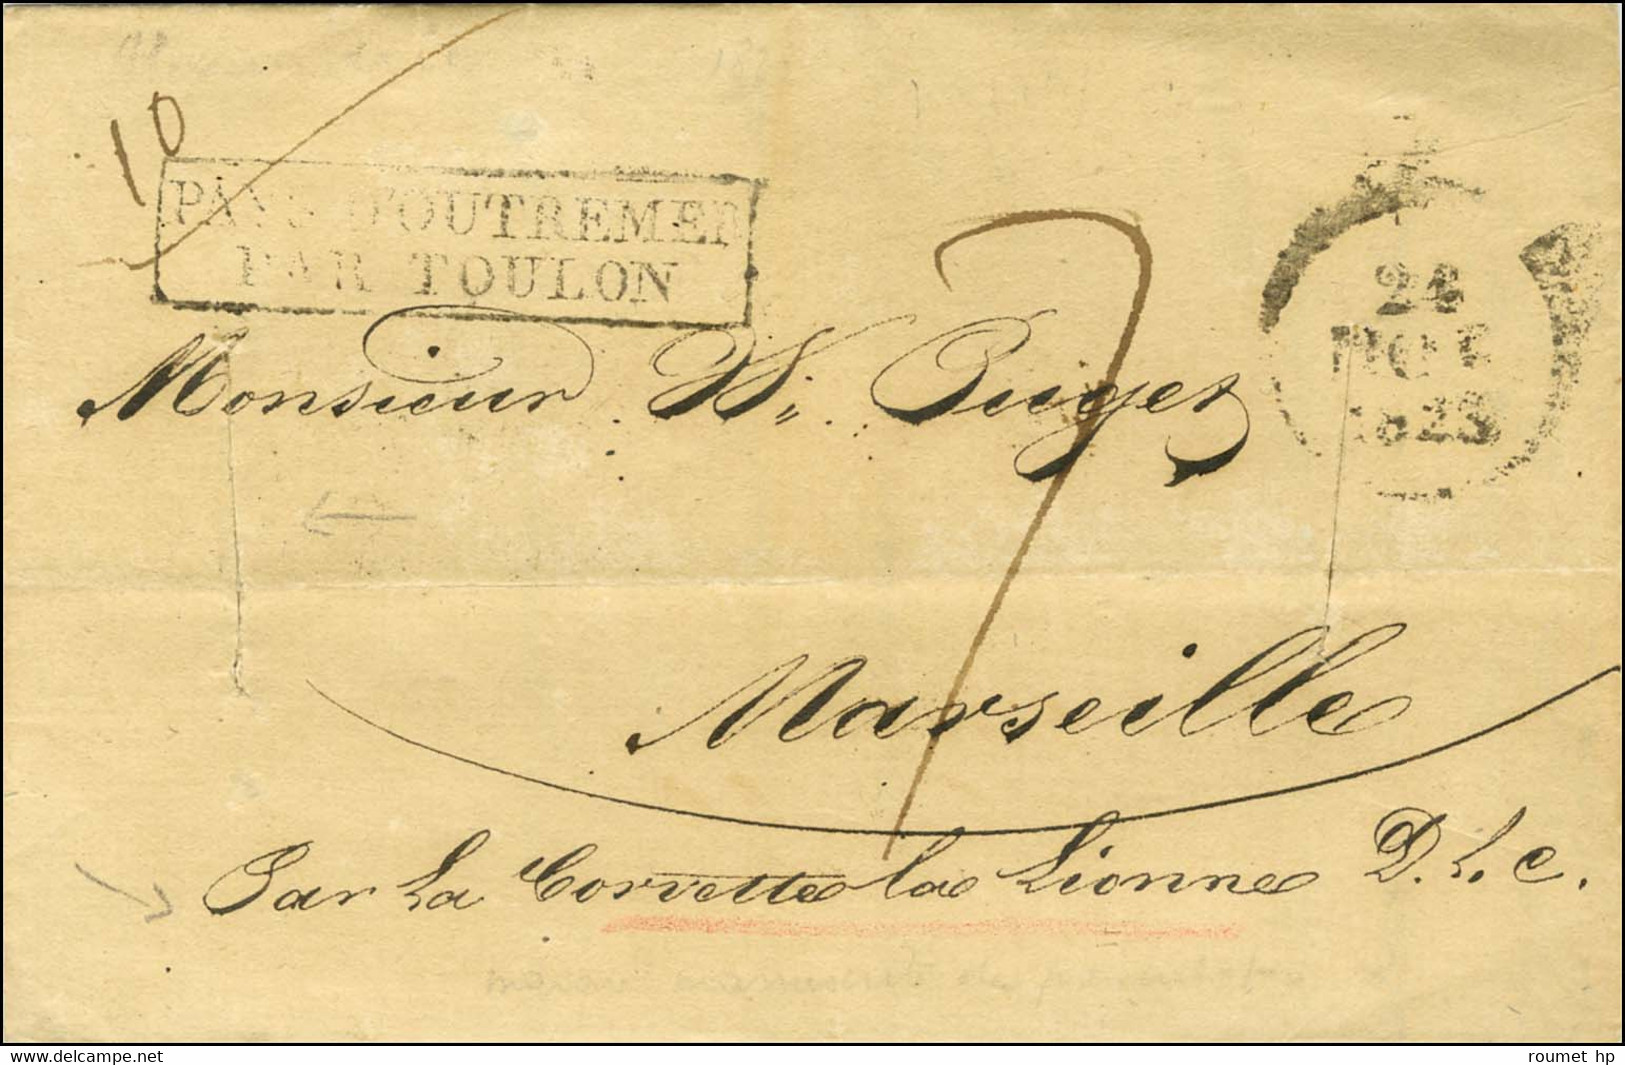 10
PAYS D'OUTREMER
PAR TOULON
24
AOUT
1823
7
Monsieur W.. Puget
Marseille
Par La Corvette la Lionne D. L. C.
www.delcampe.net
roumet hp